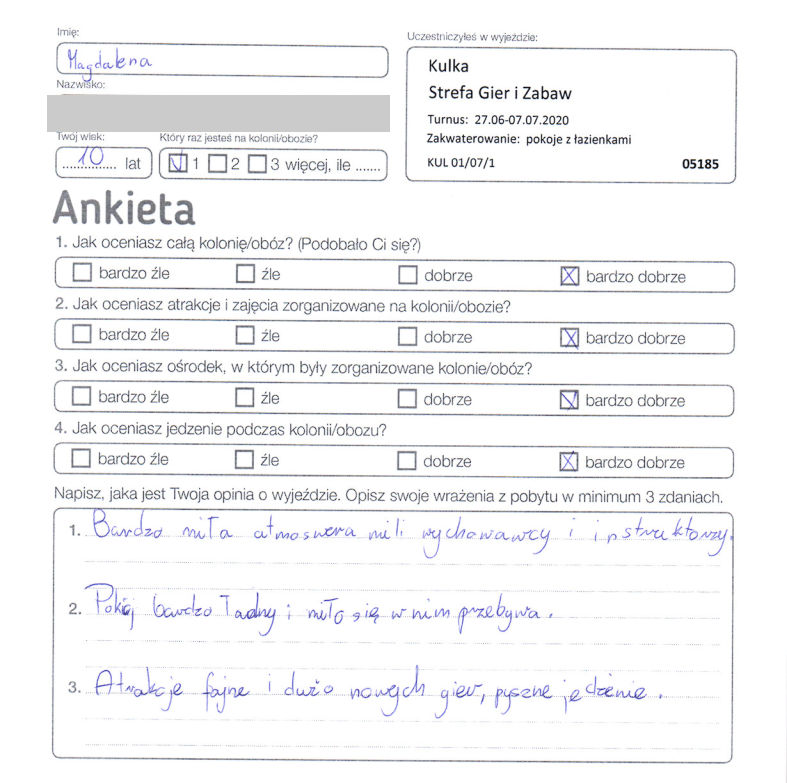 Imię:
Magdalena
Nazwisko:
Twój wiek:
10 lat
Który raz jesteś na kolonii/obozie?
1 2 3 więcej, ile .......
Uczestniczyłeś w wyjeździe:
Kulka
Strefa Gier i Zabaw
Turnus: 27.06-07.07.2020
Zakwaterowanie: pokoje z łazienkami
KUL 01/07/1 05185
Ankieta
1. Jak oceniasz całą kolonię/obóz? (Podobało Ci się?)
bardzo źle źle dobrze bardzo dobrze
2. Jak oceniasz atrakcje i zajęcia zorganizowane na kolonii/obozie?
bardzo źle źle dobrze bardzo dobrze
3. Jak oceniasz ośrodek, w którym były zorganizowane kolonie/obóz?
bardzo źle źle dobrze bardzo dobrze
4. Jak oceniasz jedzenie podczas kolonii/obozu?
bardzo źle źle dobrze bardzo dobrze
Napisz, jaka jest Twoja opinia o wyjeździe. Opisz swoje wrażenia z pobytu w minimum 3 zdaniach.
1. Bardzo miła atmoswera mili wychowawcy i instruktorzy.
2. Pokój bardzo ładny i miło się w nim przebywa.
3. Atrakcje fajne i dużo nowych gier, pyszne jedzenie.